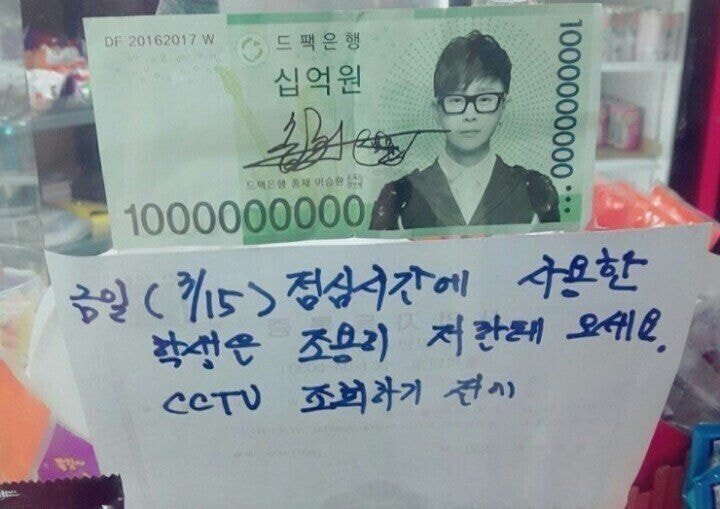 DF 20162017 W
드 팩 은 행
십억원
드팩은행 총재 이승환
1000000000
1000000000
금일 (3/15) 점심시간에 사용한
학생은 조용히 저한테 오세요.
CCTV 조회하기 전에